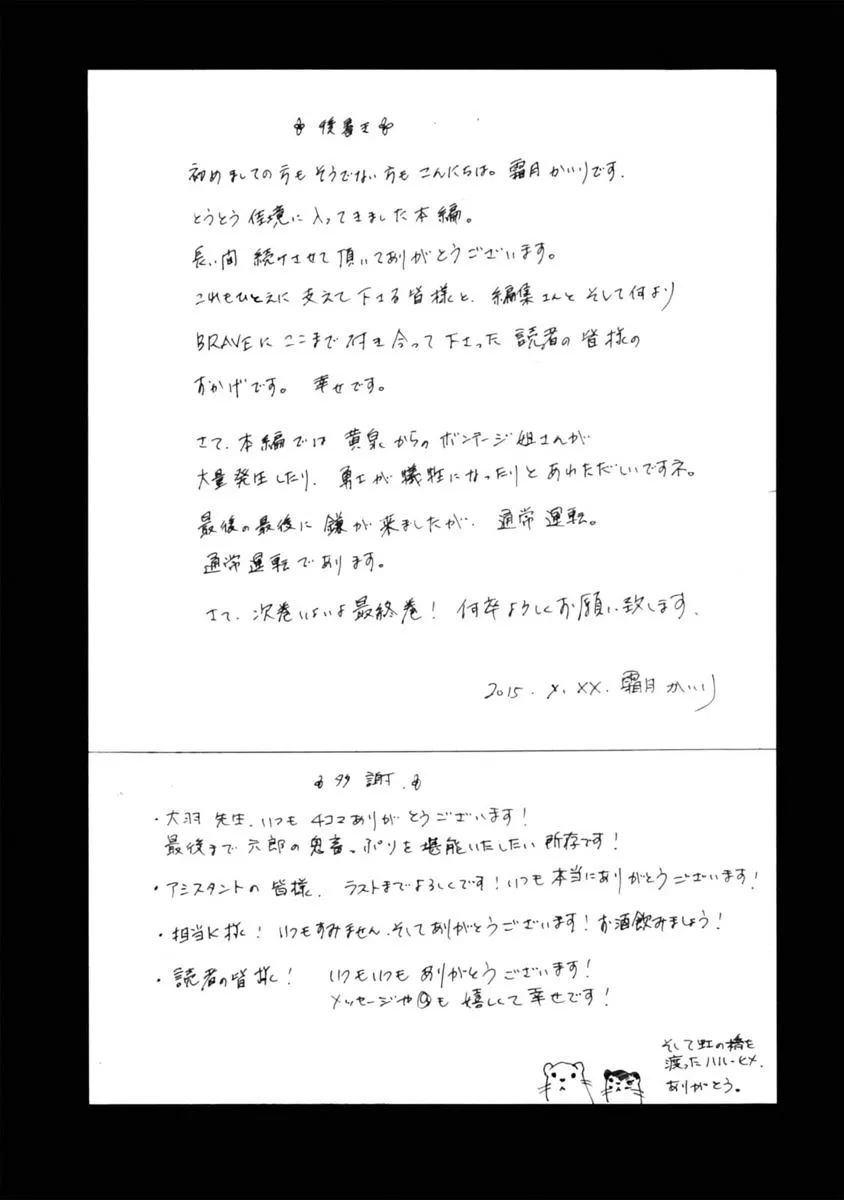 後書き
初めましての方もそうでない方もこんにちは。霜月かいりです.
とうとう佳境に入ってきました本編。
長い間 続けさせて頂いてありがとうございます。
これもひとえに 支えて下さる皆様と、編集さんと そして何より
BRAVEに ここまで付き合って下さった 読者の皆様の
おかげです。 幸せです。
さて、本編では 黄泉からの ボンテージ姐さんが
大量発生したり、勇士が犠牲になったりと あわただしいですネ。
最後の最後に 鎌が来ましたが、通常運転。
通常運転であります。
さて、次巻いよいよ最終巻! 何卒よろしくお願い致します.
2015. X. XX. 霜月かいり
多謝.
・大羽先生、いつも 4コマありがとうございます!
最後まで 六郎の鬼畜っぷりを 堪能いたしたい所存です!
・アシスタントの皆様、ラストまでよろしくです!いつも本当にありがとうございます!
・担当K様! いつもすみません、そしてありがとうございます! お酒飲みましょう!
・読者の皆様! いつもいつも ありがとうございます!
メッセージや も 嬉しくて 幸せです!
そして虹の橋を
渡ったハル・ヒメ、
ありがとう。